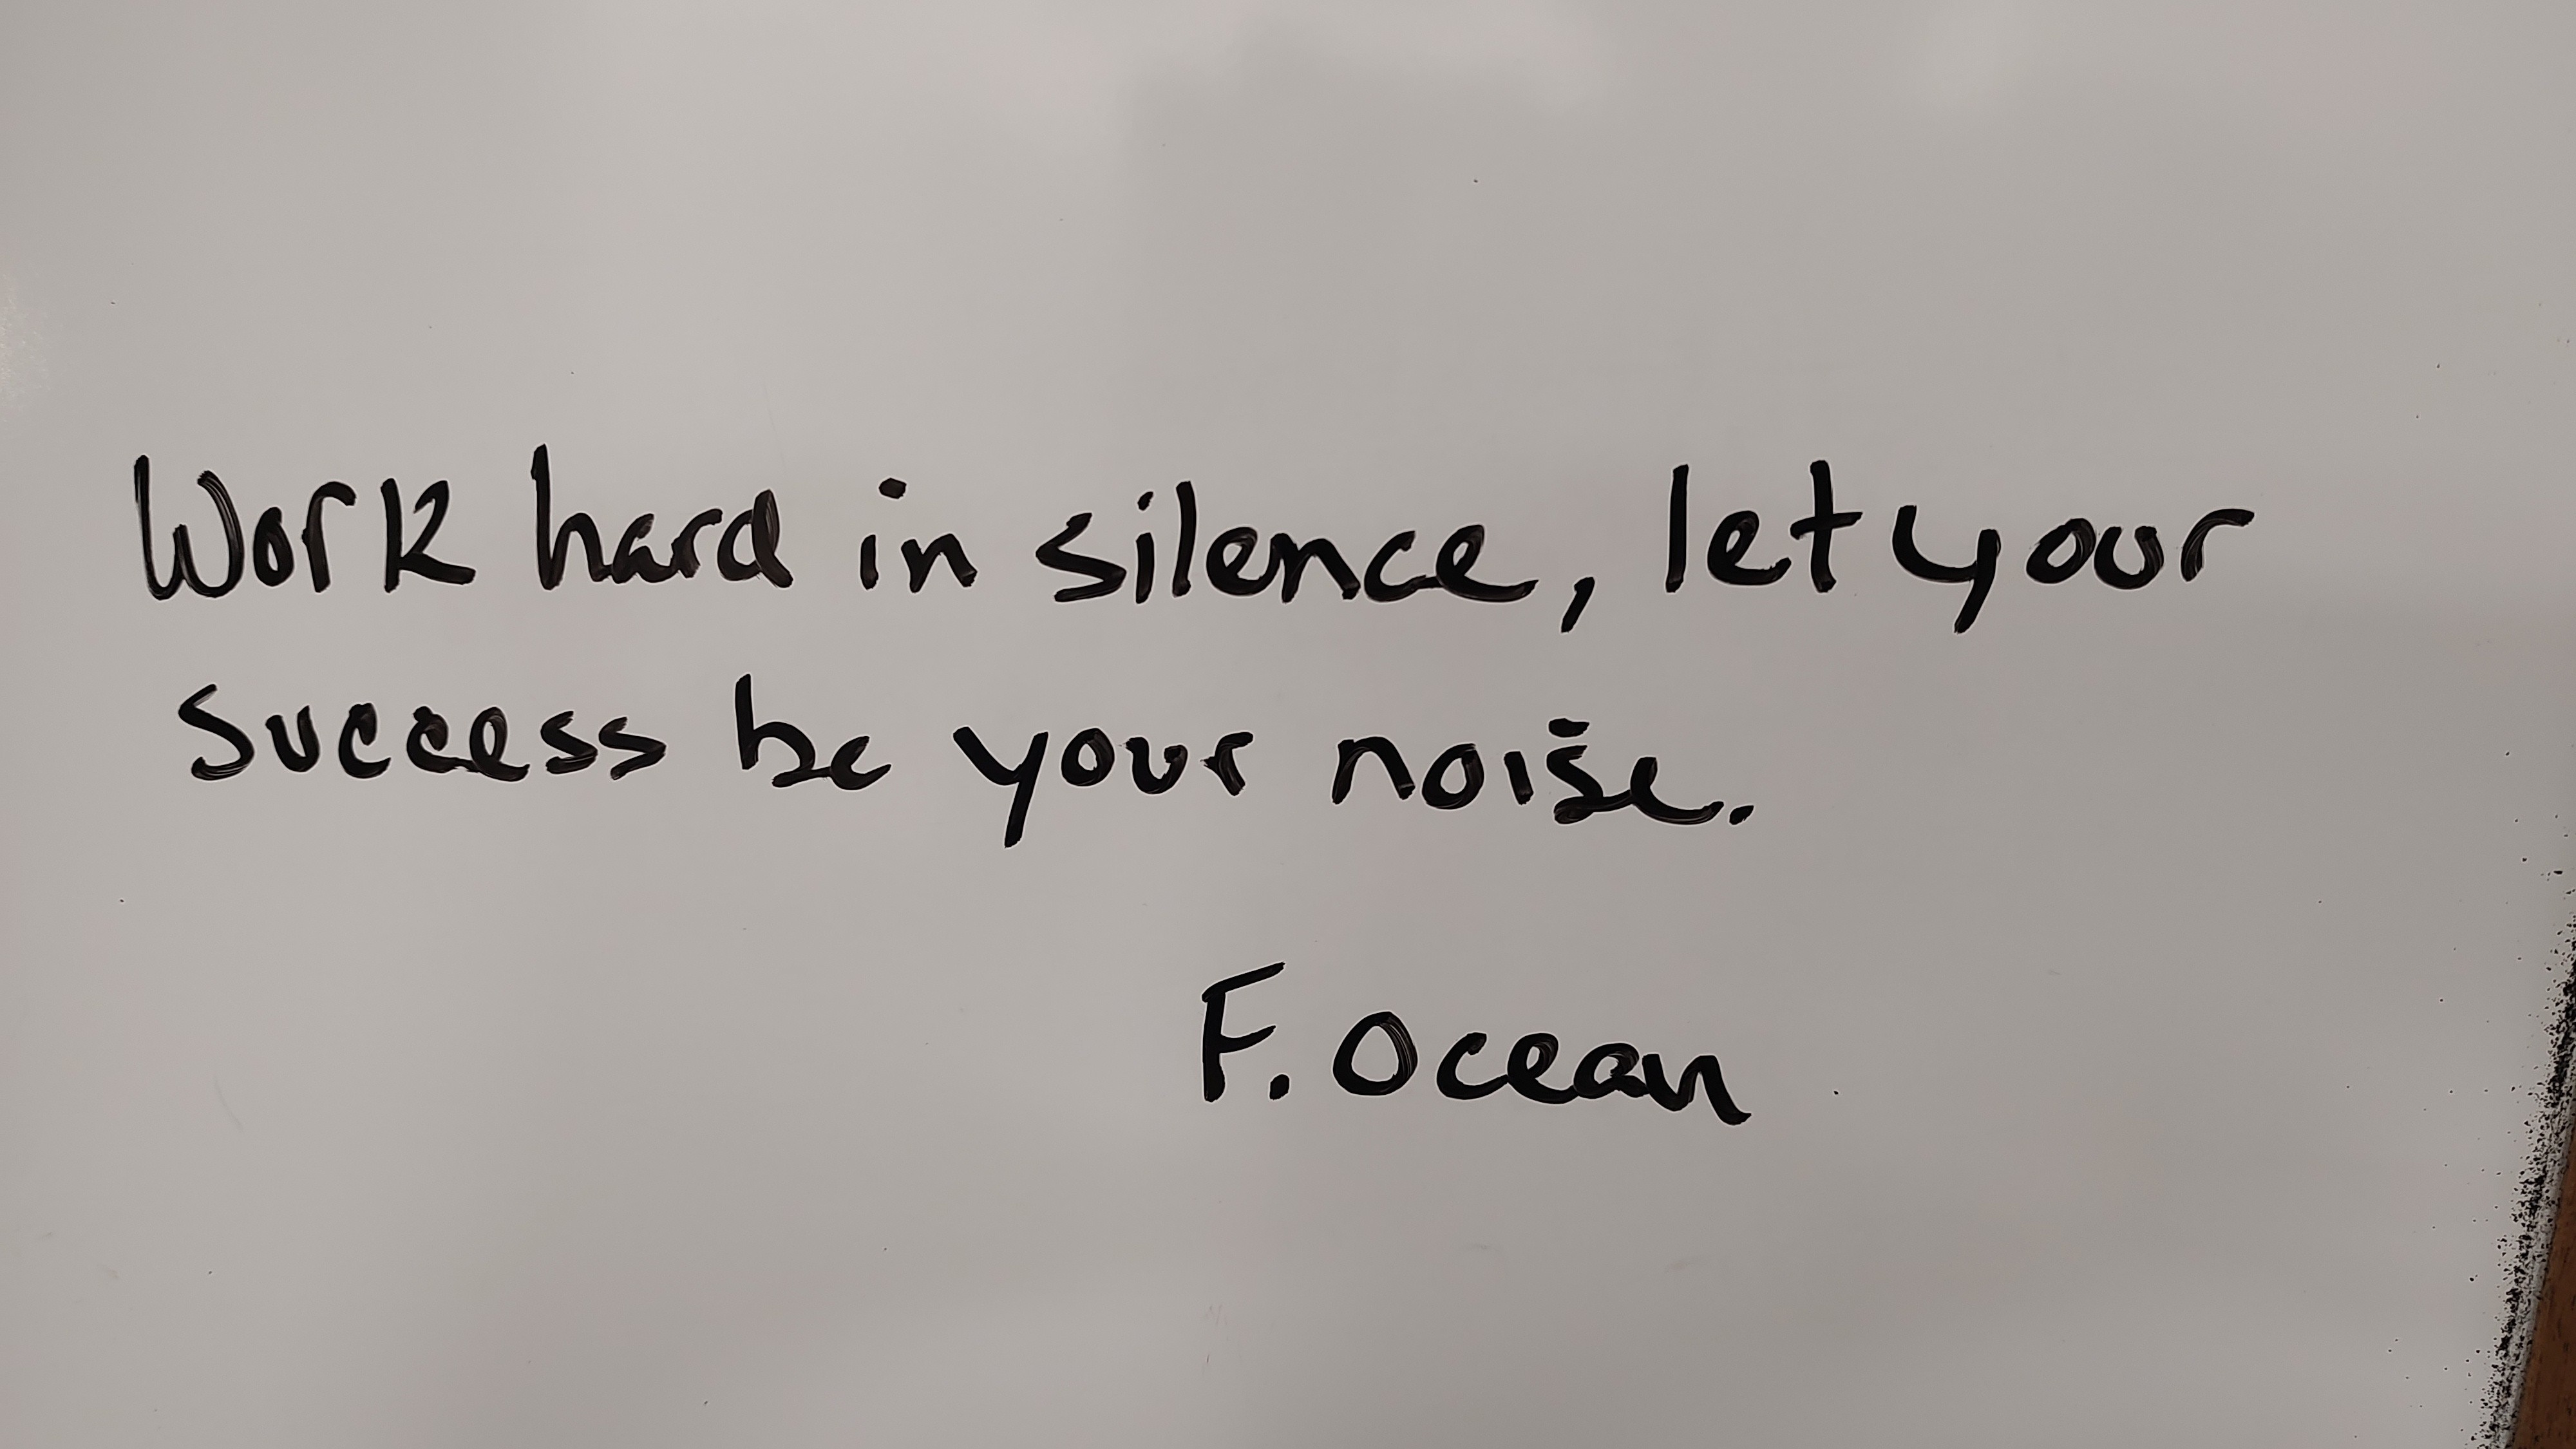 Work hard in silence, let your
success be your noise.
F. Ocean